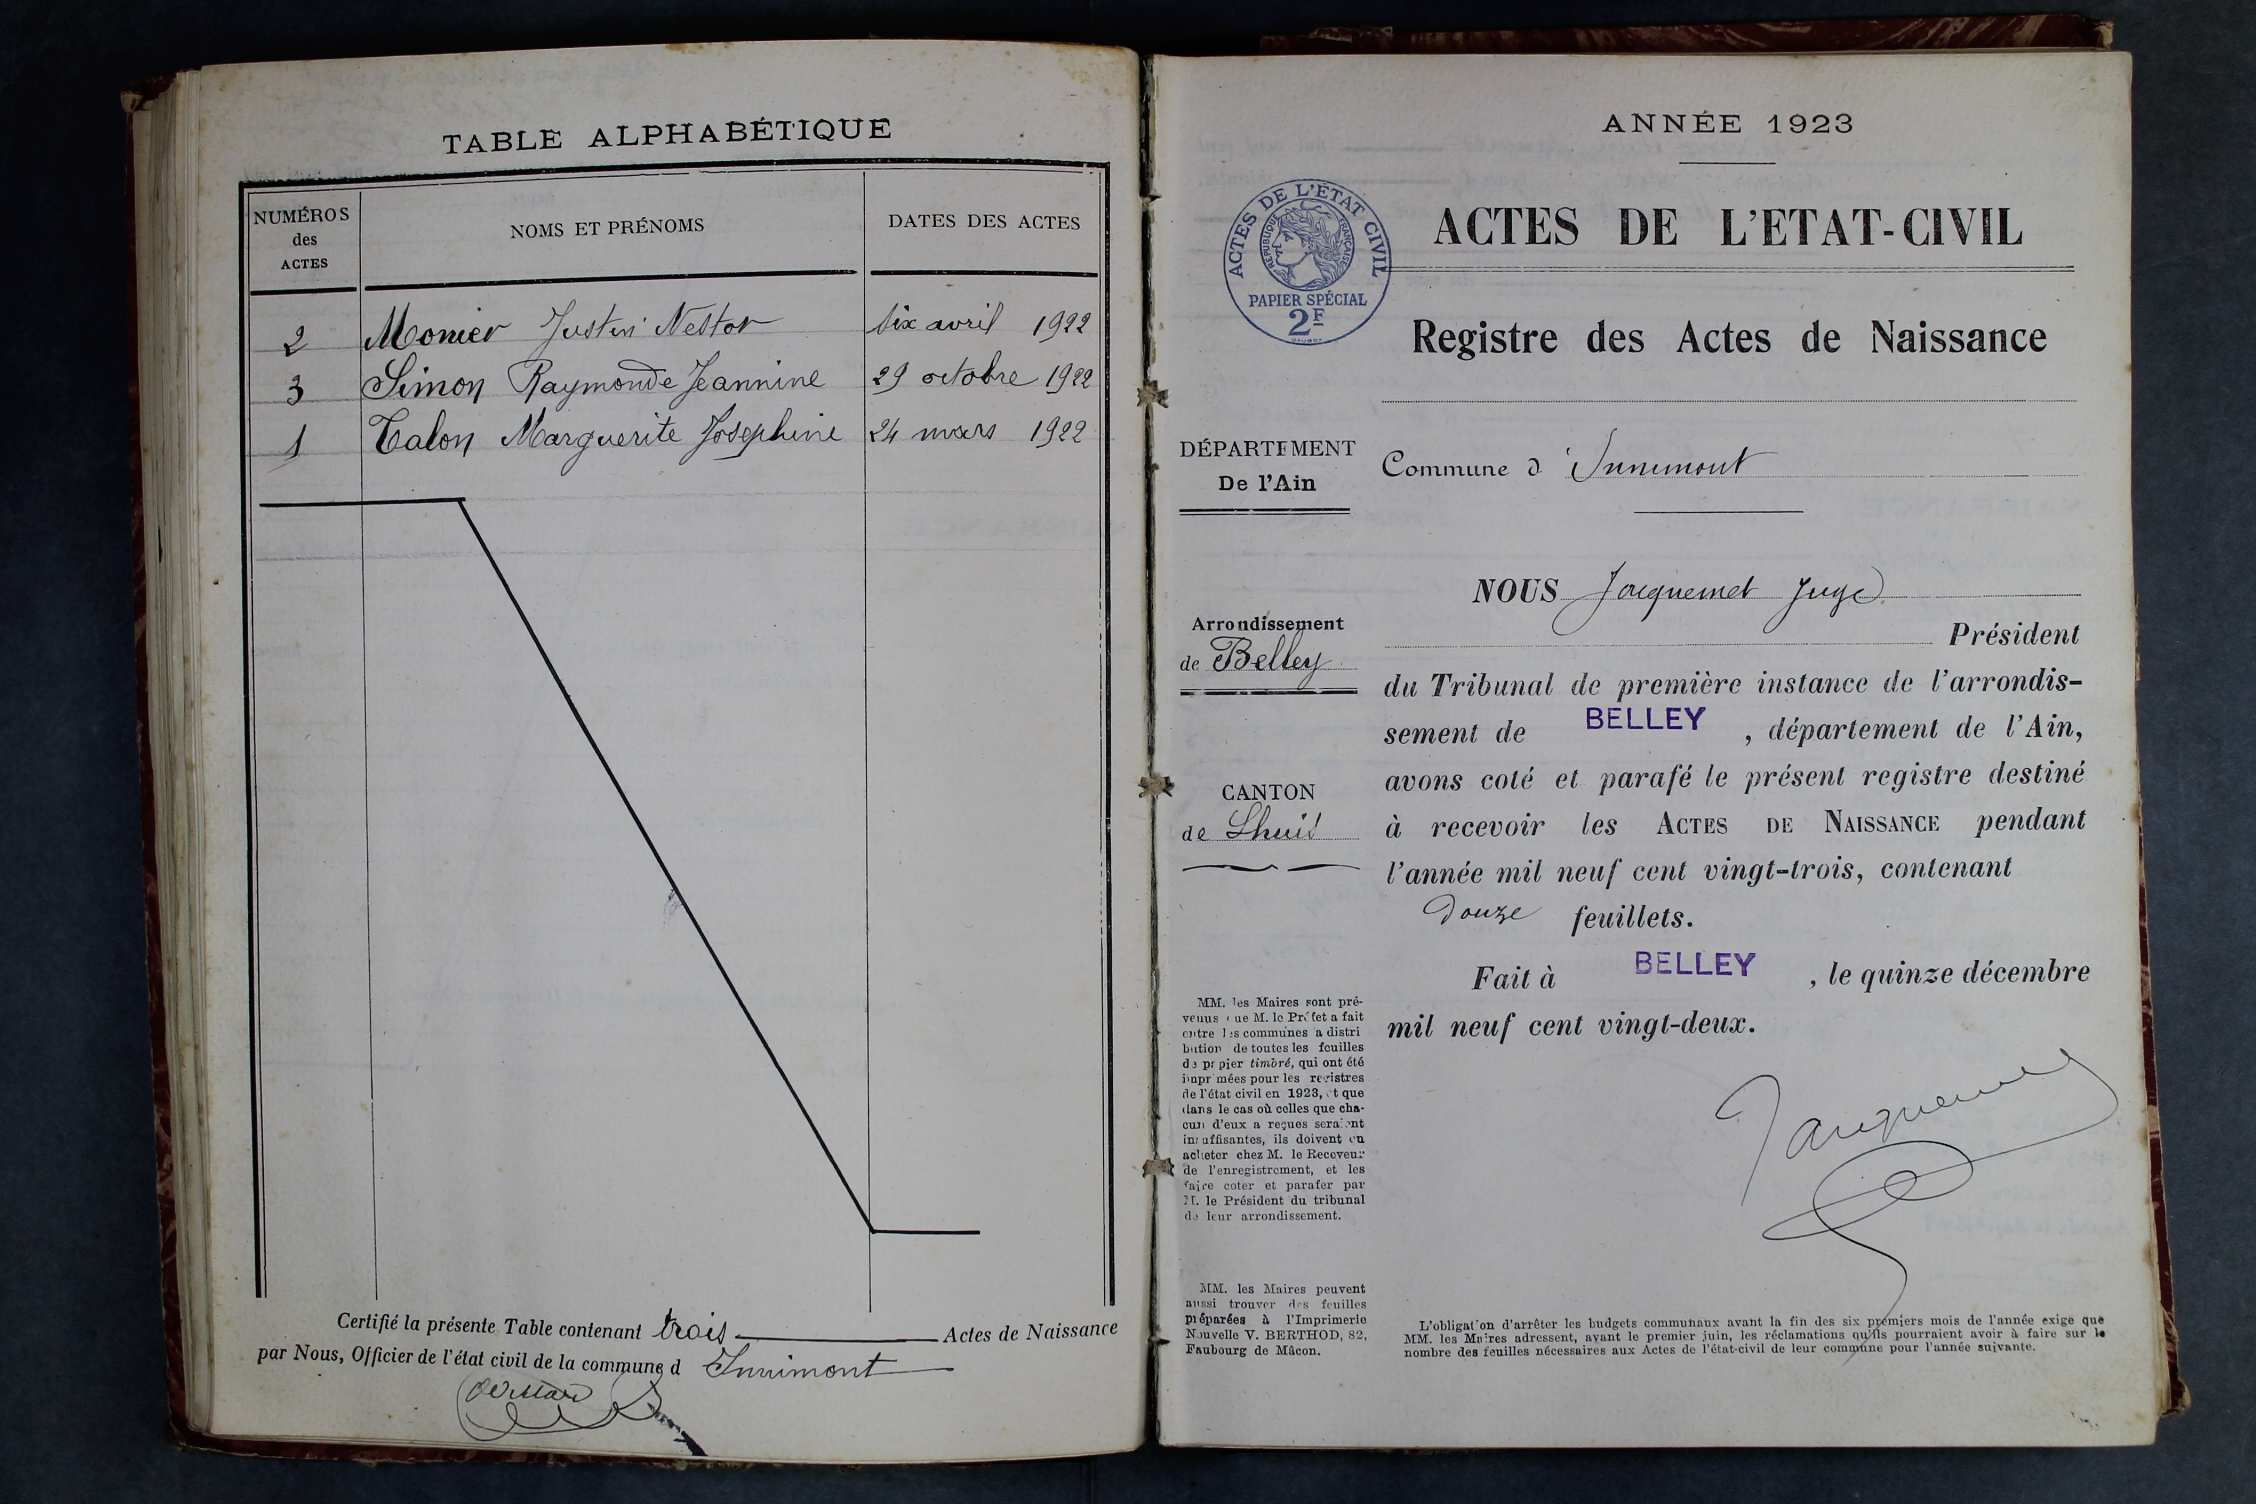 TABLE ALPHABÉTIQUE
NUMÉROS
des
ACTES
NOMS ET PRÉNOMS
DATES DES ACTES
2 Monier Justin Nestor six avril 1922
3 Simon Raymonde Jeannine 29 octobre 1922
1 Talon Marguerite Josephine 24 mars 1922
Certifié la présente Table contenant trois Actes de Naissance
par Nous, Officier de l'état civil de la commune d Innimont
ANNÉE 1923
ACTES DE L'ÉTAT CIVIL
RÉPUBLIQUE FRANÇAISE
PAPIER SPÉCIAL
2F
ACTES DE L'ETAT-CIVIL
Registre des Actes de Naissance
DÉPARTEMENT
De l'Ain
Commune d'Innimont
Arrondissement
de Belley
CANTON
de Lhuis
NOUS Jacquemet Juge
Président
du Tribunal de première instance de l'arrondis-
sement de BELLEY, département de l'Ain,
avons coté et parafé le présent registre destiné
à recevoir les ACTES DE NAISSANCE pendant
l'année mil neuf cent vingt-trois, contenant
Douze feuillets.
Fait à BELLEY, le quinze décembre
mil neuf cent vingt-deux.
Jacquemet
MM. les Maires sont pré-
venus que M. le Préfet a fait
entre les communes a distri
bution de toutes les feuilles
de papier timbré, qui ont été
imprimées pour les registres
de l'état civil en 1923, et que
dans le cas où celles que cha-
cun d'eux a reçues seraient
insuffisantes, ils doivent en
acheter chez M. le Receveur
de l'enregistrement, et les
faire coter et parafer par
M. le Président du tribunal
de leur arrondissement.
MM. les Maires peuvent
aussi trouver des feuilles
préparées à l'Imprimerie
Nouvelle V. BERTHOD, 82,
Faubourg de Mâcon.
L'obligation d'arrêter les budgets communaux avant la fin des six premiers mois de l'année exige que
MM. les Maires adressent, avant le premier juin, les réclamations qu'ils pourraient avoir à faire sur le
nombre des feuilles nécessaires aux Actes de l'état-civil de leur commune pour l'année suivante.